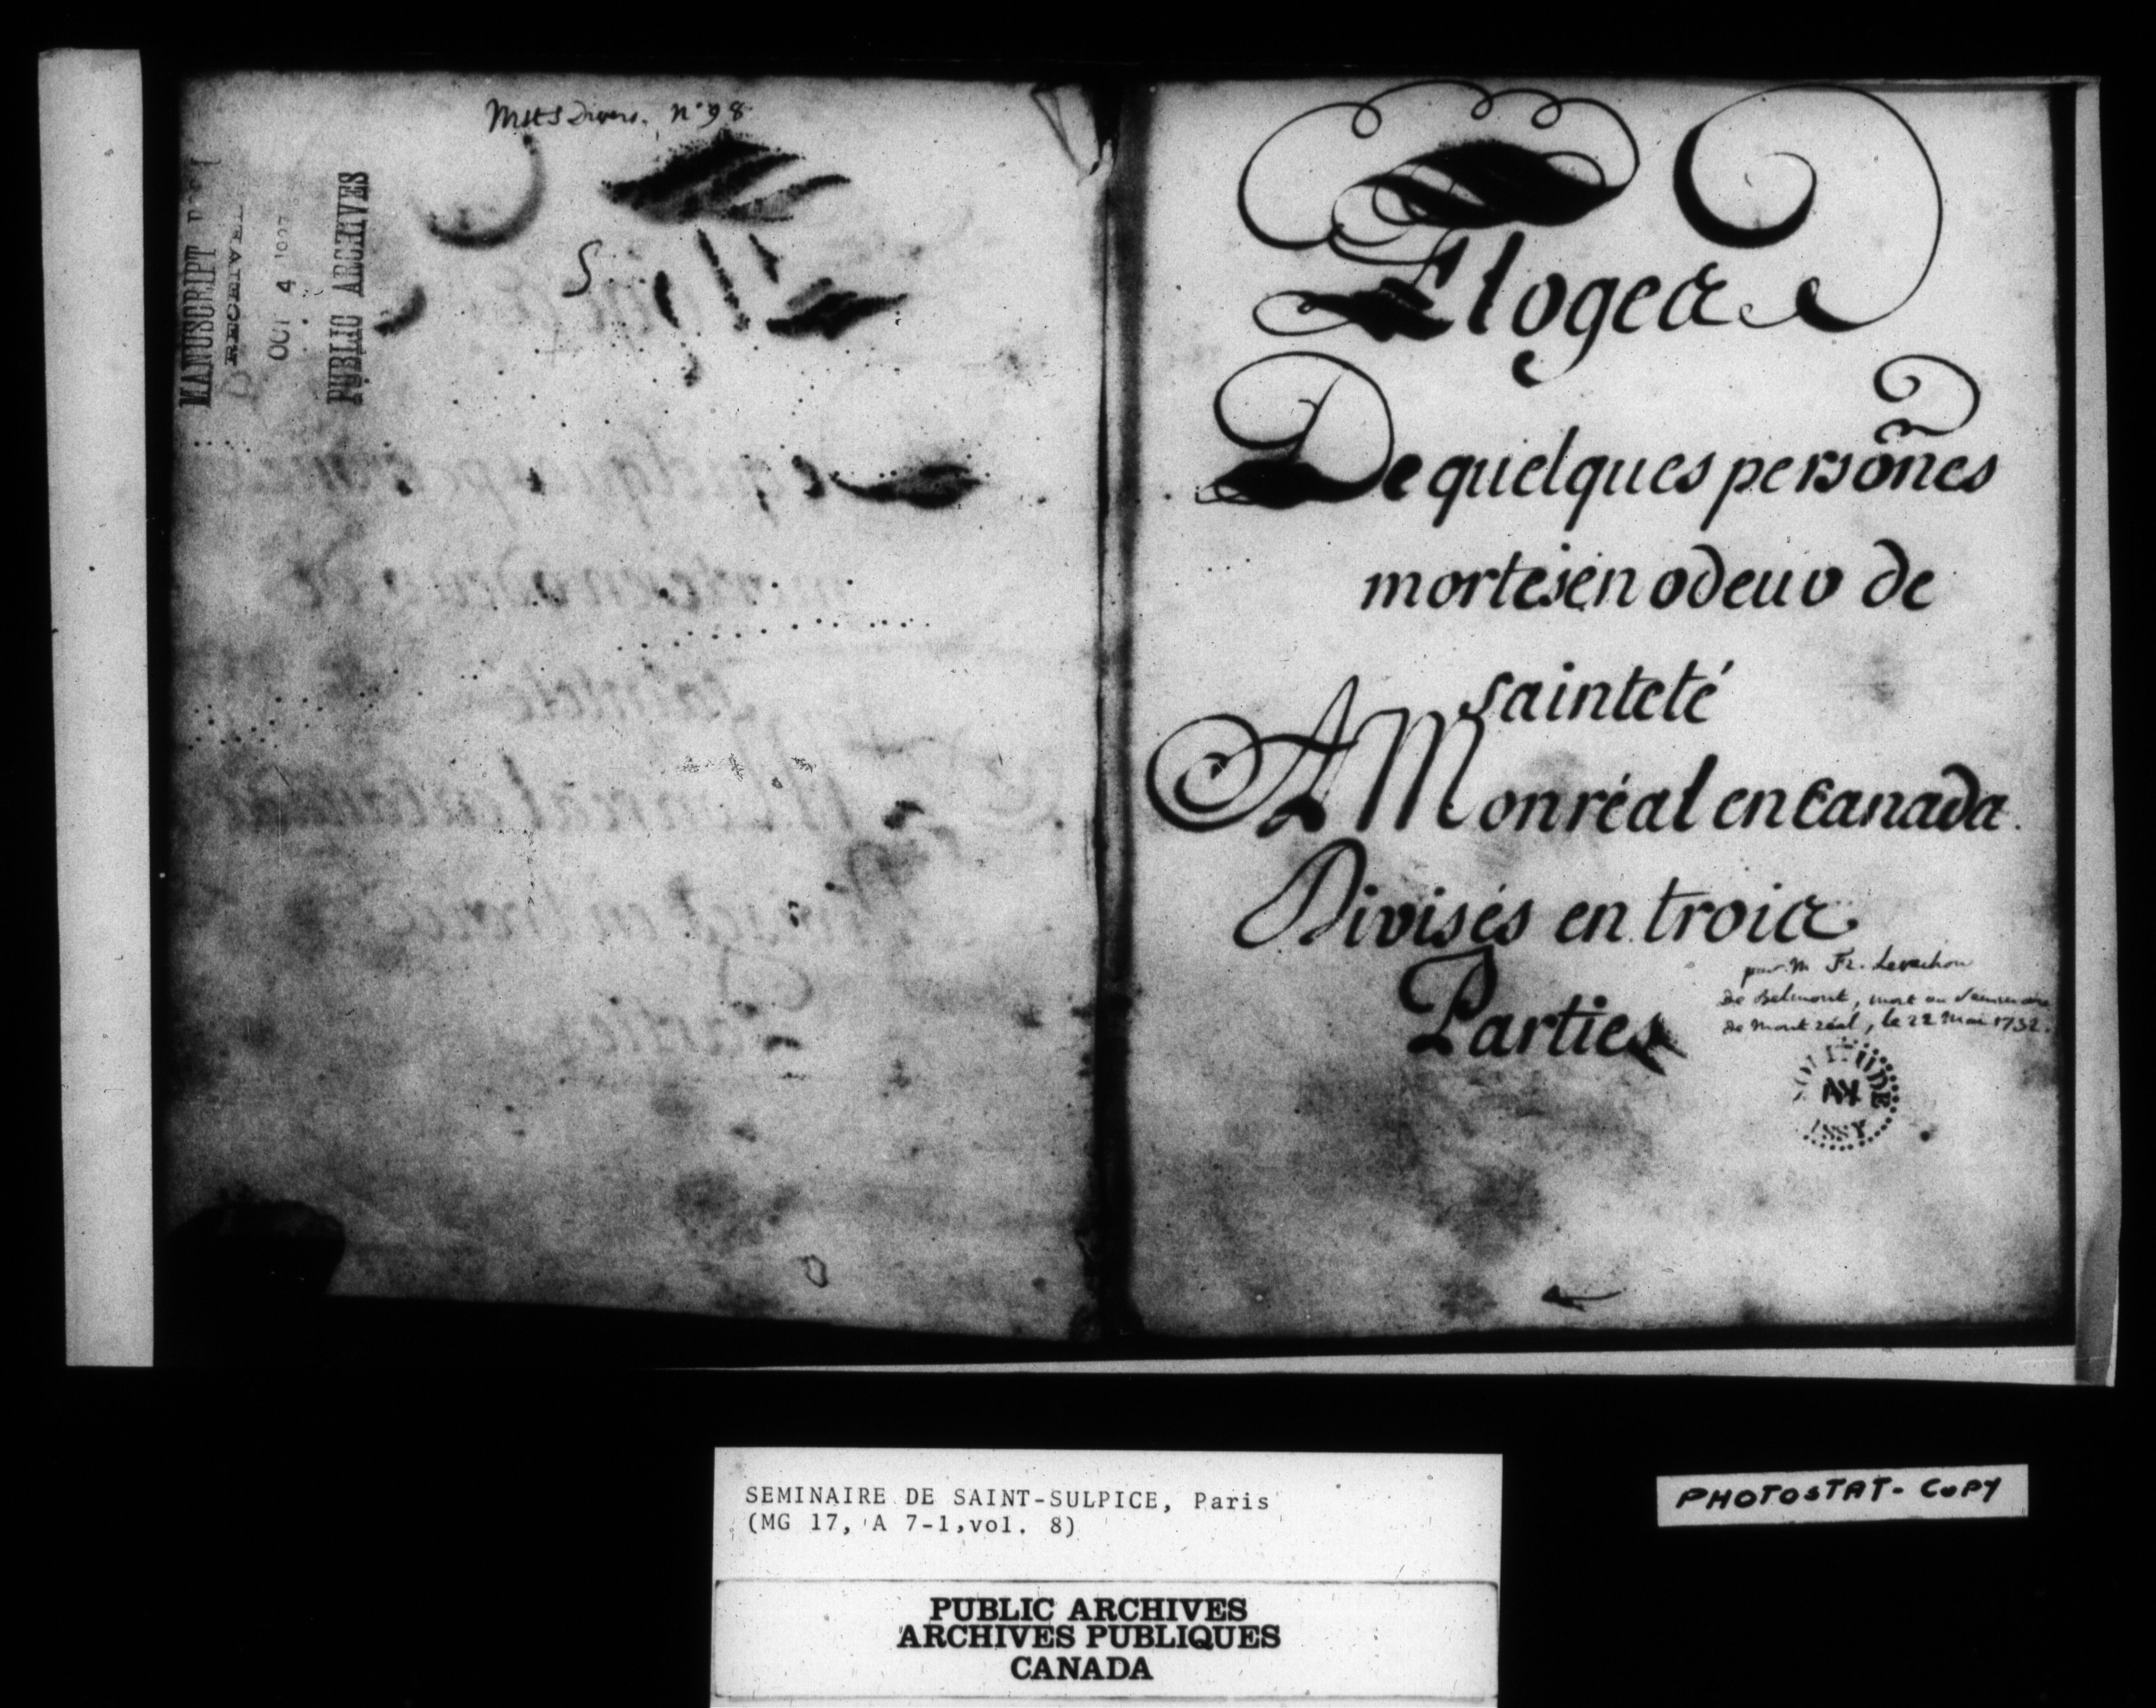 MssS Divers. n° 98
MANUSCRIPT
OCT 4
PUBLIC ARCHIVES
S
Eloges
De quelques persoñes
mortes en odeur de
sainteté
A Monréal en Canada.
Divisés en trois
Parties
par M. Fr. Levachon
de Belmont, mort au Séminaire
de Montréal, le 22 Mai 1732.
SOLITUDE
ISSY
SEMINAIRE DE SAINT-SULPICE, Paris
(MG 17, A 7-1, vol. 8)
PUBLIC ARCHIVES
ARCHIVES PUBLIQUES
CANADA
PHOTOSTAT-COPY